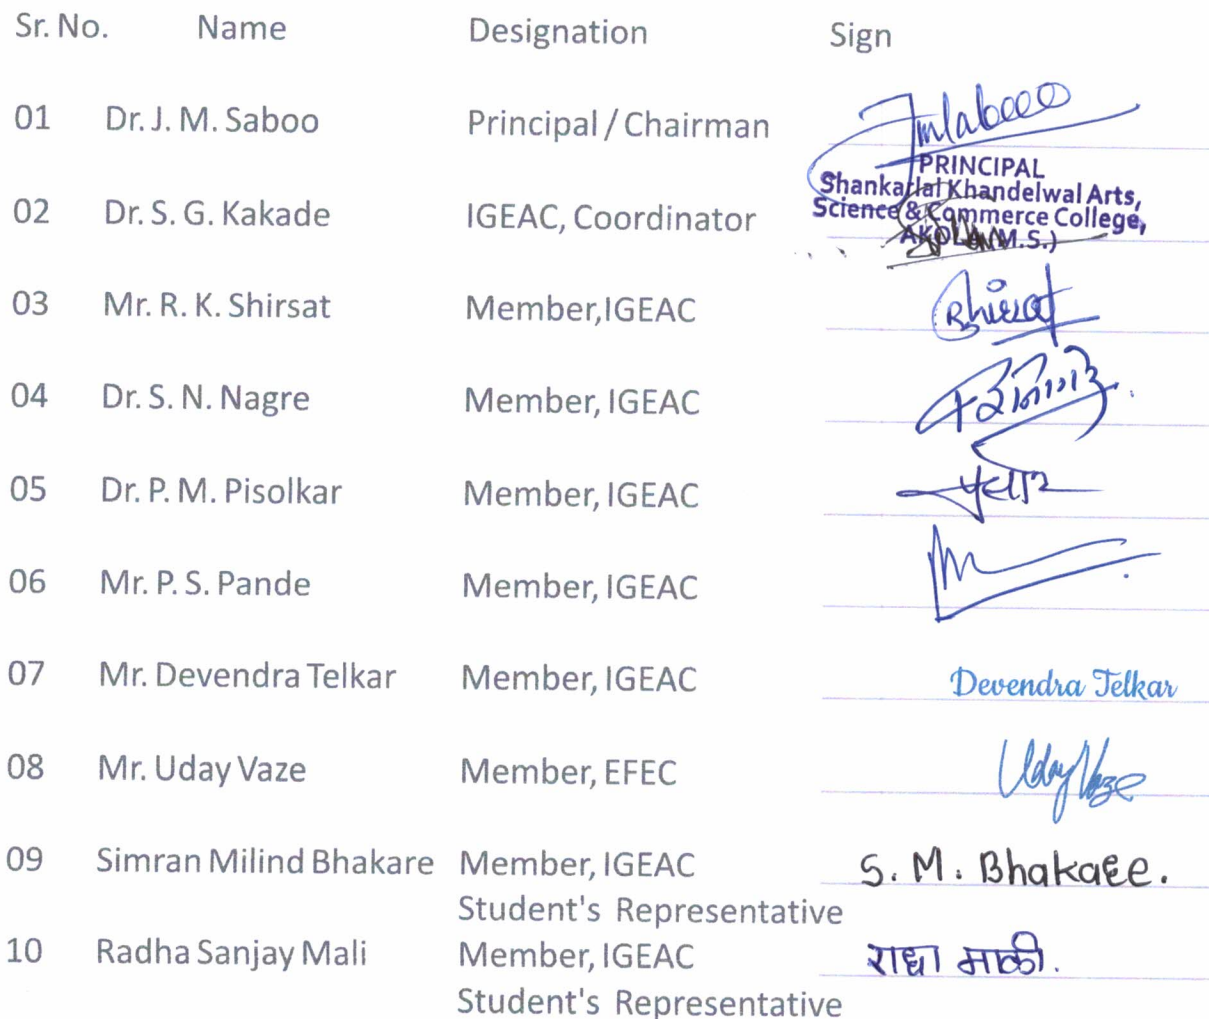 Sr. No. Name Designation Sign
01 Dr. J. M. Saboo Principal / Chairman
PRINCIPAL
Shankarlal Khandelwal Arts,
Science & Commerce College,
AKOLA (M.S.)
02 Dr. S. G. Kakade IGEAC, Coordinator
03 Mr. R. K. Shirsat Member,IGEAC
04 Dr. S. N. Nagre Member, IGEAC
05 Dr. P. M. Pisolkar Member, IGEAC
06 Mr. P. S. Pande Member, IGEAC
07 Mr. Devendra Telkar Member, IGEAC Devendra Telkar
08 Mr. Uday Vaze Member, EFEC Uday Vaze
09 Simran Milind Bhakare Member, IGEAC S. M. Bhakare.
Student's Representative
10 Radha Sanjay Mali Member, IGEAC राधा माळी.
Student's Representative